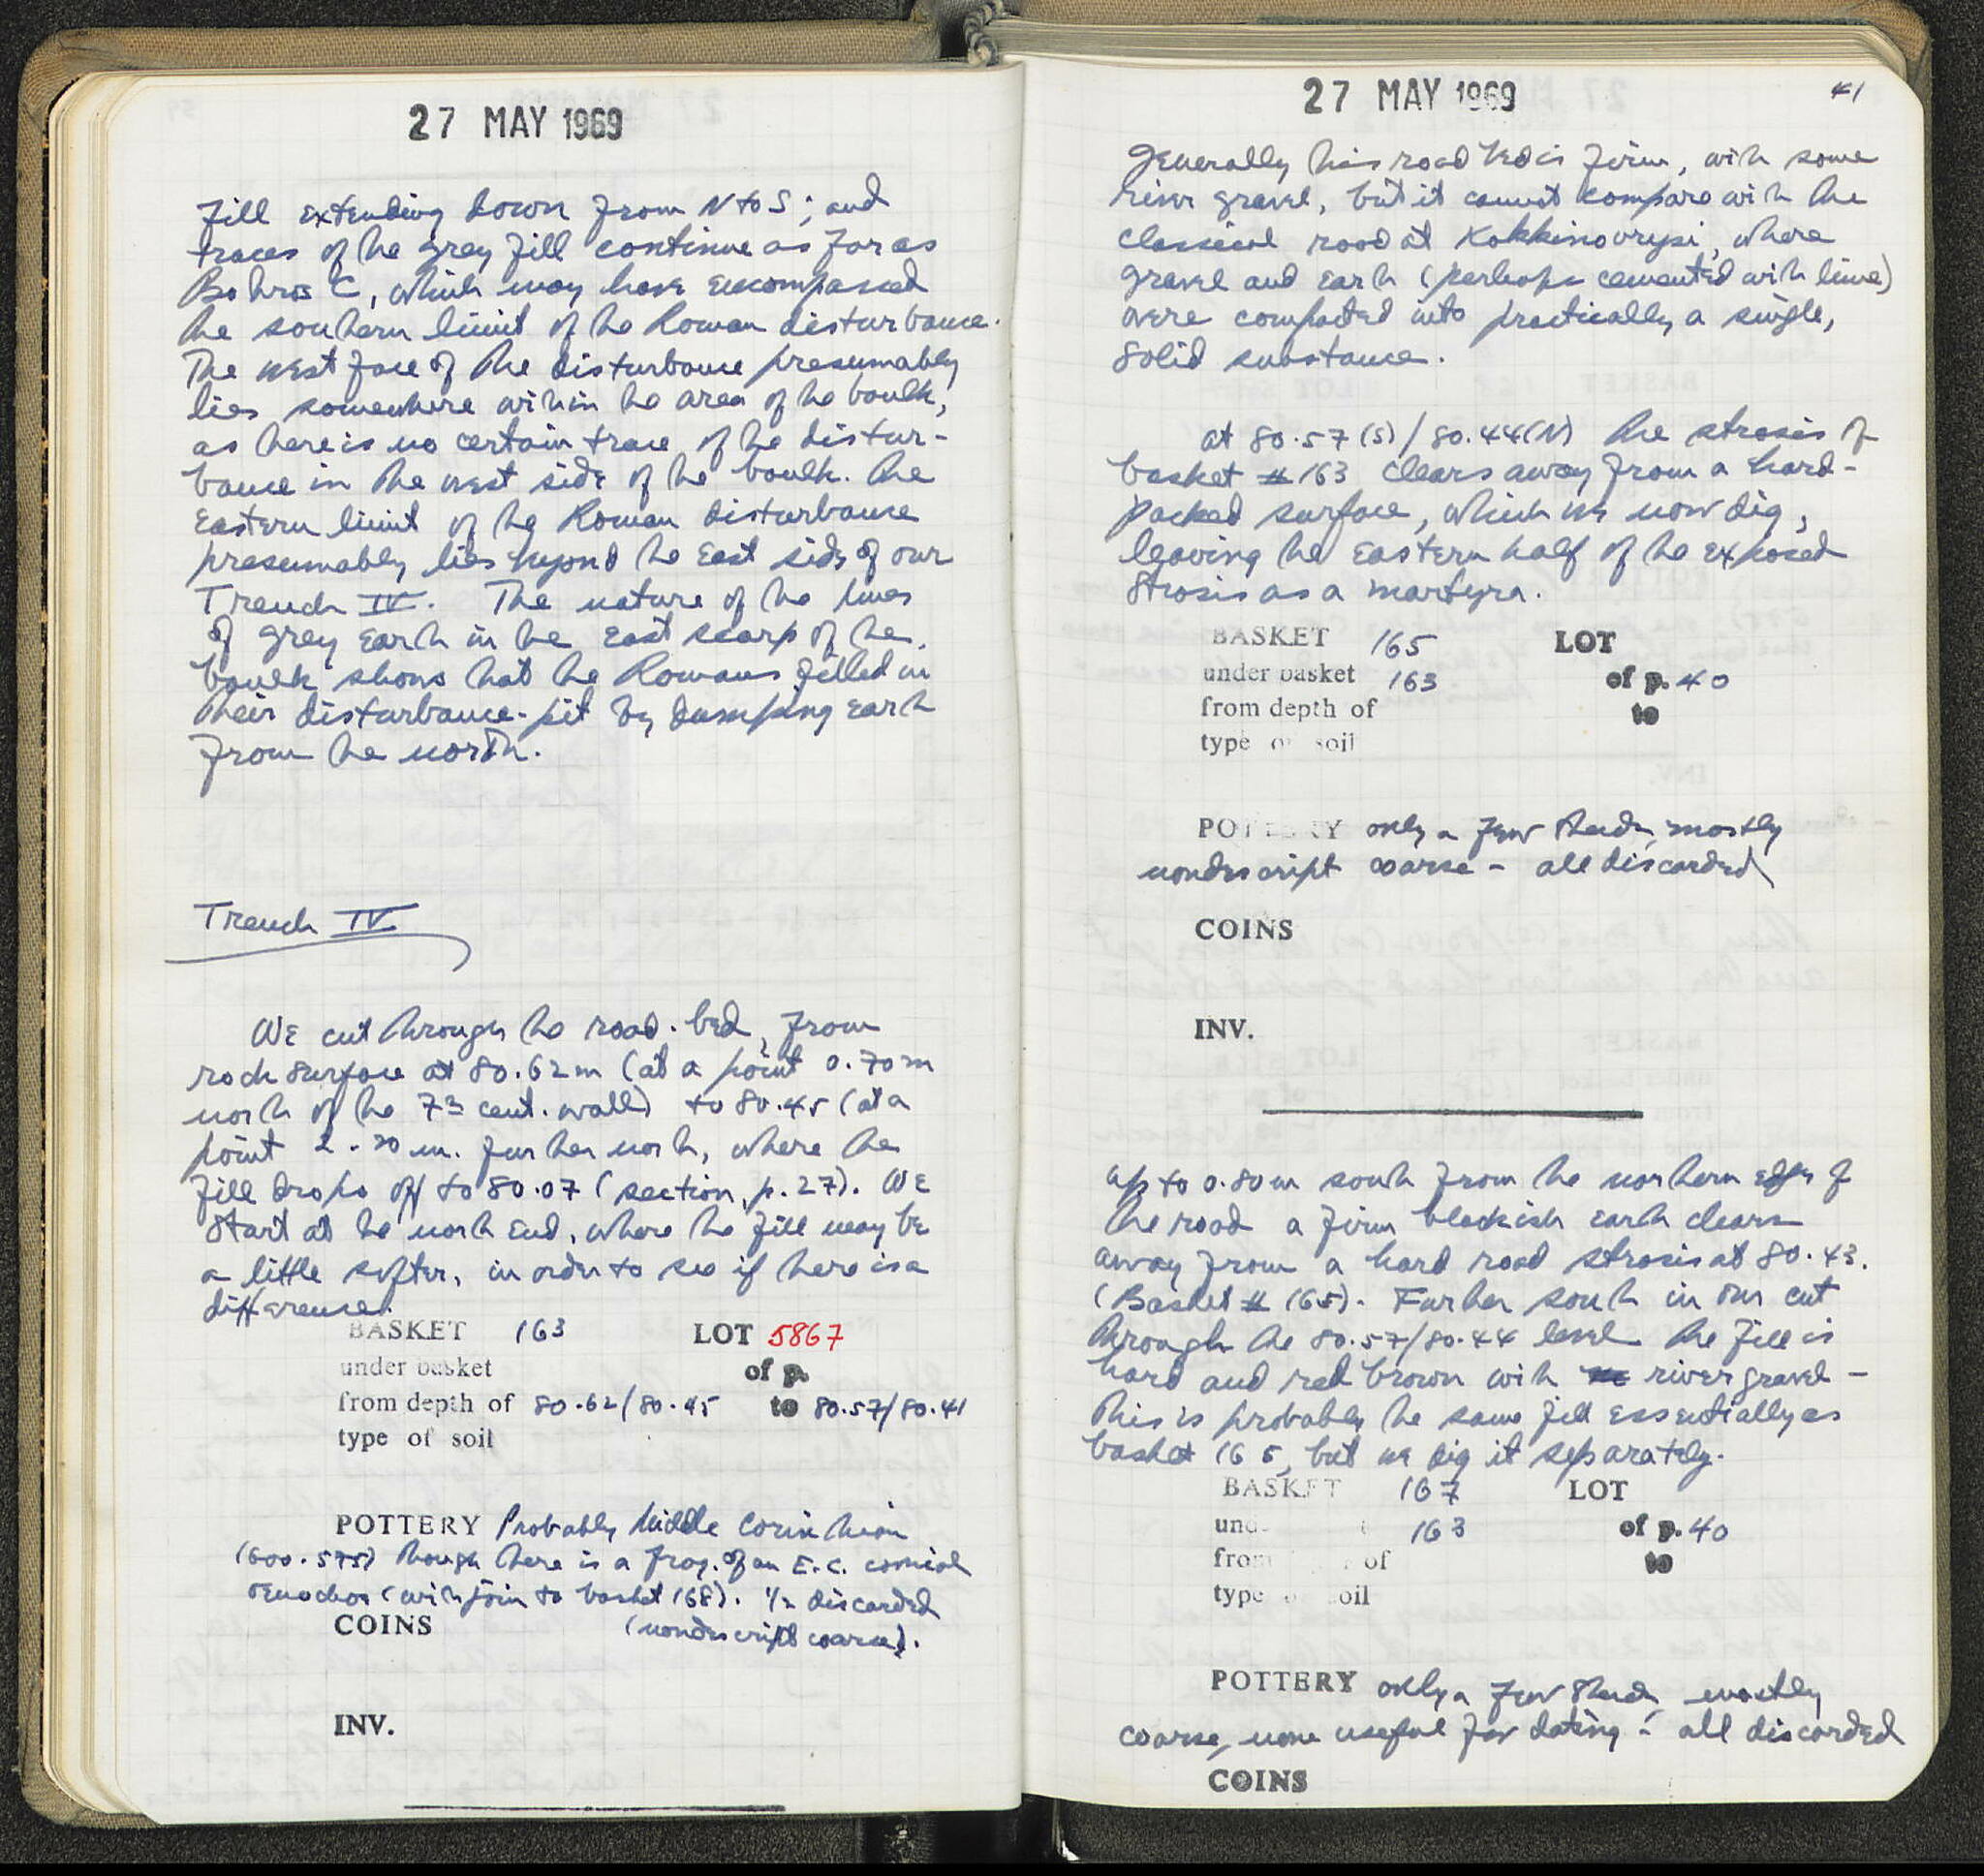 27 MAY 1969
fill extending down from N to S; and
traces of the grey fill continue as far as
Bothros C, which may have encompassed
the southern limit of the Roman disturbance.
The west face of the disturbance presumably
lies somewhere within the area of the baulk,
as there is no certain trace of the distur-
bance in the west side of the baulk. The
Eastern limit of the Roman disturbance
presumably lies beyond the East side of our
Trench IV. The nature of the lines
of grey Earth in the East scarp of the
baulk shows that the Romans filled in
their disturbance-pit by dumping Earth
from the north.
Trench IV
We cut through the road-bed, from
rock surface at 80.62m (at a point 0.70m
north of the 7th cent. wall) to 80.45 (at a
point 2.20 m. further north, where the
fill drops off to 80.07 (section, p. 27). We
start at the north End, where the fill may be
a little softer, in order to see if there is a
difference.
BASKET 163 LOT 5867
under basket of p.
from depth of 80.62/80.45 to 80.57/80.41
type of soil
POTTERY Probably Middle Corinthian
(600-575) though there is a frag. of an E.C. conical
oenochoe (with join to basket 168). 1/2 discarded
COINS (nondescript coarse).
INV.
27 MAY 1969 41
Generally this road bed is firm, with some
river gravel, but it cannot compare with the
classical road at Kokkinovrysi, where
gravel and earth (perhaps cemented with lime)
were compacted into practically a single,
solid substance.
at 80.57(S)/80.44(N) the strosis of
basket # 163 clears away from a hard-
packed surface, which we now dig,
leaving the Eastern half of the exposed
strosis as a martyra.
BASKET 165 LOT
under basket 163 of p. 40
from depth of to
type of soil
POTTERY only a few sherds, mostly
nondescript coarse - all discarded
COINS
INV.
Up to 0.80m south from the northern edge of
the road a firm blackish earth clears
away from a hard road strosis at 80.43.
(Basket # 165). Further south in our cut
through the 80.57/80.44 level the fill is
hard and red brown with river gravel -
this is probably the same fill essentially as
basket 165, but we dig it separately.
BASKET 167 LOT
under basket 163 of p. 40
from depth of to
type of soil
POTTERY only a few sherds, mostly
coarse, none useful for dating - all discarded
COINS